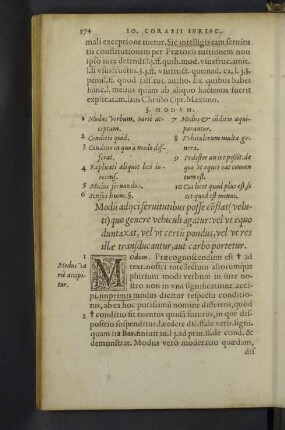 174 IO. CORASII IVRISC.
mali exceptione tuetur. Sic intelligis eam seruitu
tis constitutionem per Prætoris tuitionem non
ipso iure defendi. l. j. ff. quib. mod. vsusfruct. amit.
l. j. §. ff. vsufruct.
hanc l. melius quàm ab aliquo hactenus fuerit
explicatam, laus Christo Opt. Maximo.
§. MODVM.
1 Modus verbum, variè ac-
ceptum.
2 Conditio quid.
3 Conditio in quo à modo dif-
ferat.
4 Explicati aliquot loci in-
5 Modus seruandus.
6 Sensus huius. §.
7 Modus & cōditio æqui-
parantur.
8 Vehiculorum multa ge-
nera.
9
10 Cui licet quod plus est, li-
cet quod est minus.
Modū adijci seruitutibus posse cōstat: (velu-
ti) quo genere vehiculi agatur: vel vt equo
duntaxat, vel vt certū pondus, vel vt res
illæ transducantur, aut carbo portetur.
Modus va
riè accipi-
tur.
1 MOdum. Præcognoscendum est † ad
text. nostri intellectum aliorumque
plurium modi verbum in iure no-
stro non in vna significatione acce
pi, imprimis modus dicitur respectu conditio-
nis, ab ea hoc potissimū nomine differens, quòd
2 † conditio sit euentus quidā futurus, in quē dis-
positio suspenditur. l. cedere diē. ff. de verb. signi.
quam ita Bar. finit in l. j. ad prin. ff. de cond. &
demonstrat. Modus verò moderatio quædam,
dis